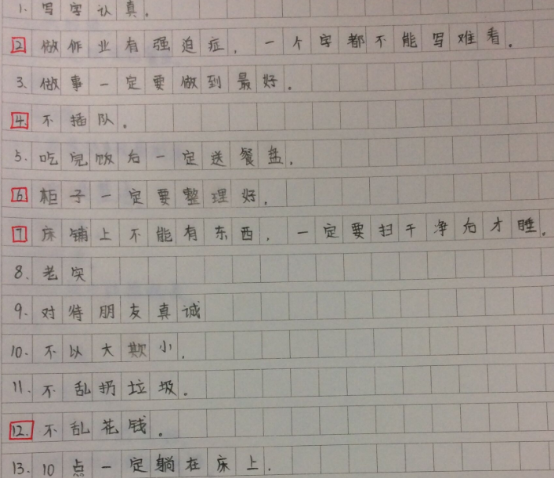 1. 写字认真.
2 做作业有强迫症，一个字都不能写难看.
3. 做事一定要做到最好.
4. 不插队.
5. 吃完饭后一定送餐盘.
6 柜子一定要整理好.
7 床铺上不能有东西，一定要扫干净后才睡.
8. 老实
9. 对待朋友真诚
10. 不以大欺小.
11. 不乱扔垃圾.
12. 不乱花钱.
13. 10点一定躺在床上.